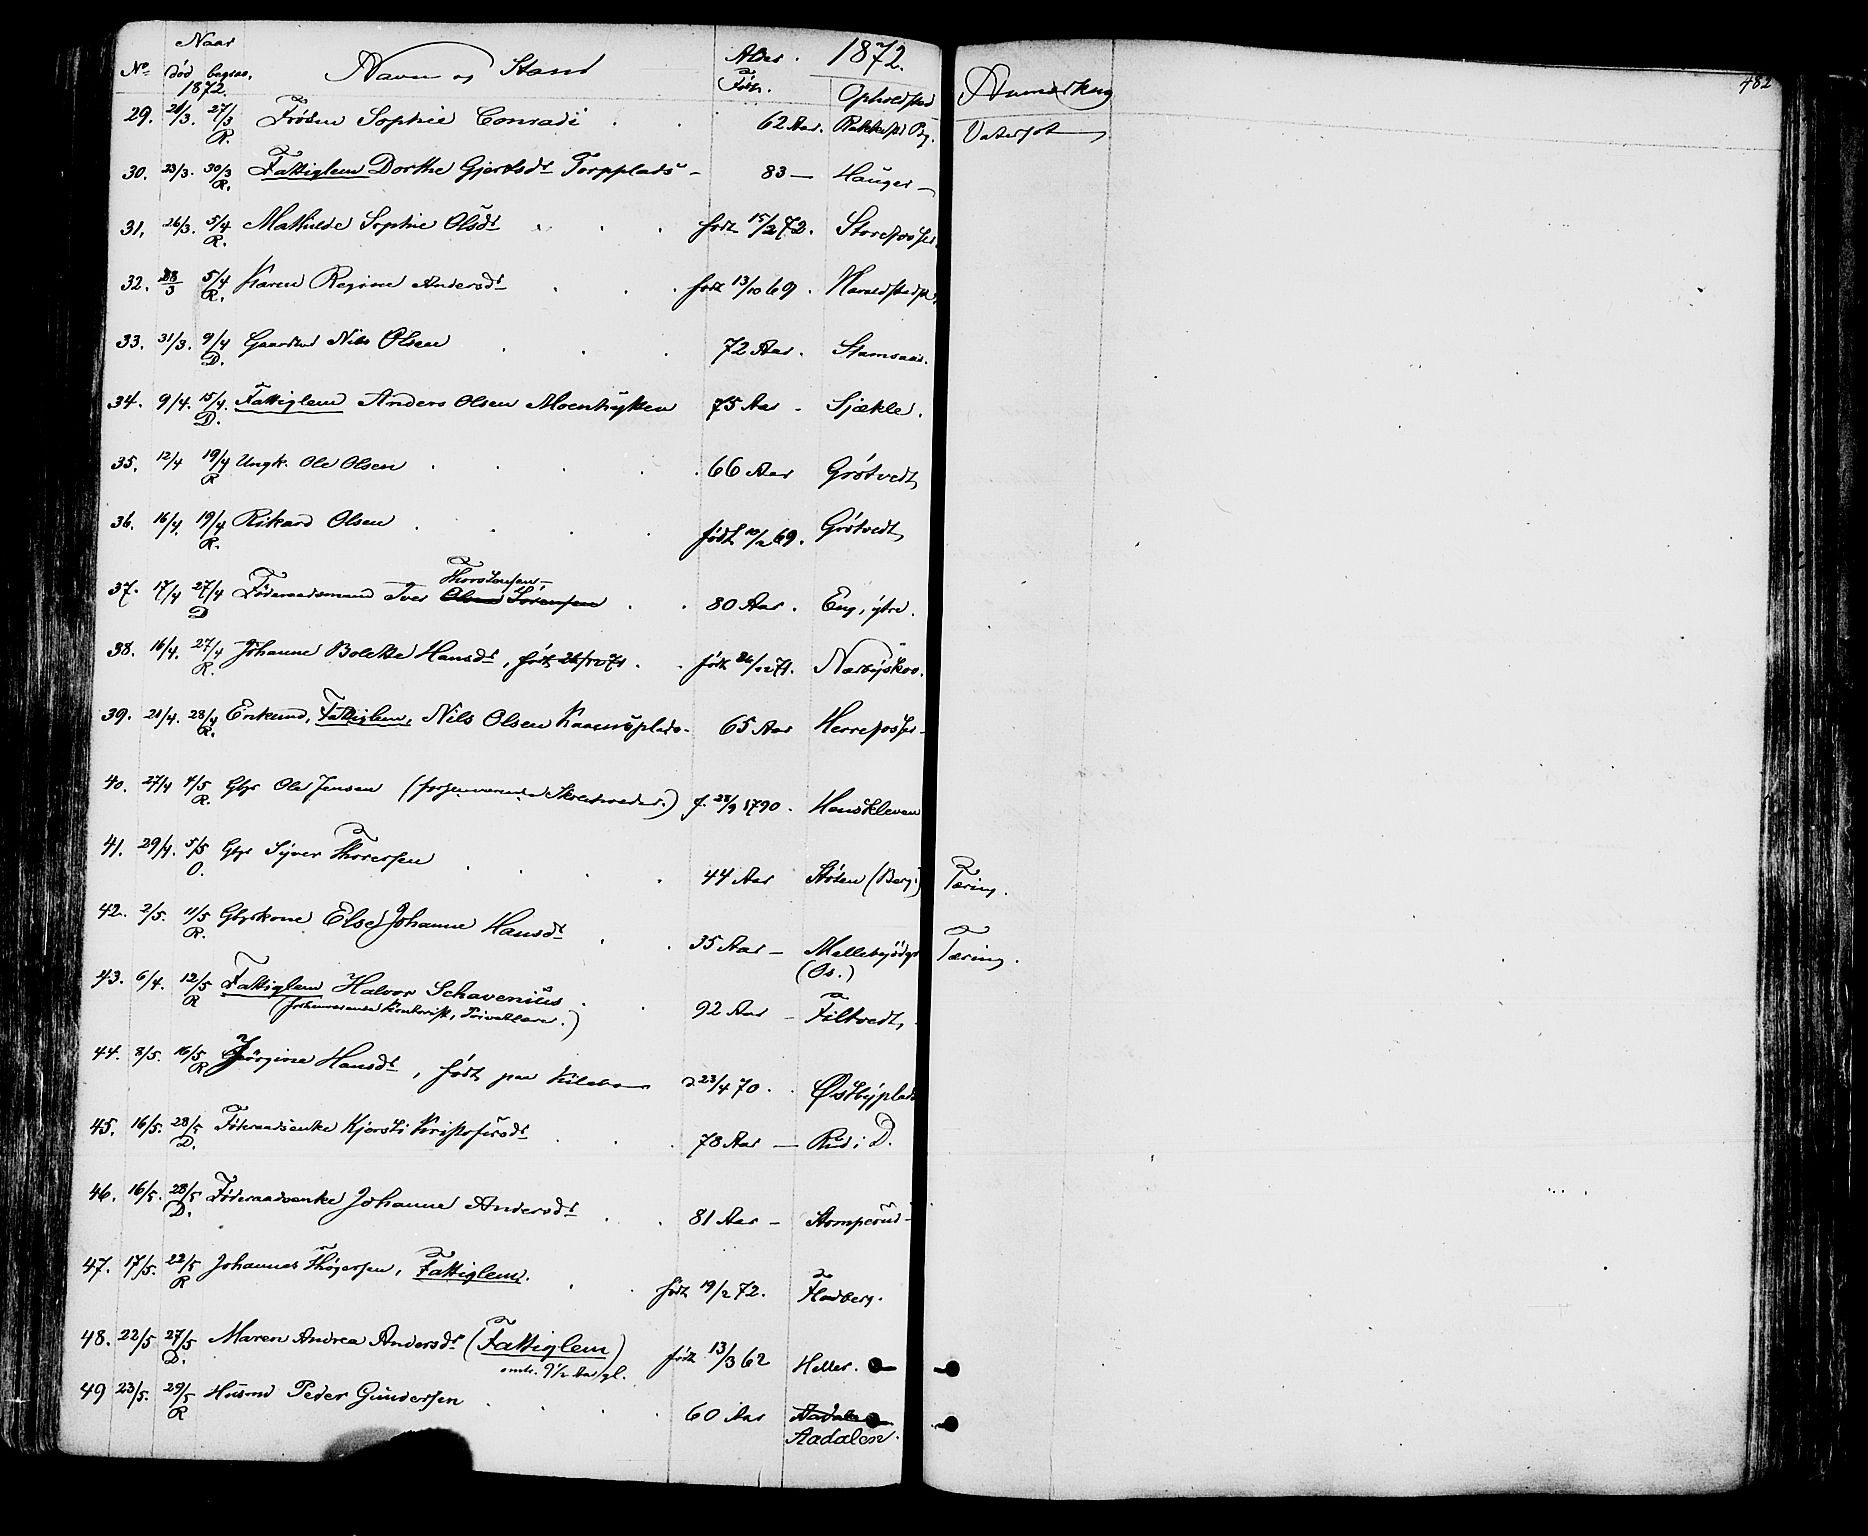 Naar
No død begrav. Navn og Stand Alder. 1872.
1872. Født. Opholdsted Anmærkning 482
29. 21/3. 27/3 Frøken Sophie Conradi 62 Aar. Rakkestd Pg. Vatersot
R.
30. 23/3. 30/3 Fattiglem Dorthe Gjertsdr Torpplads 83 — Hauger
R.
31. 26/3. 5/4 Mathilde Sophie Olsdr født 15/2 72. Storefosser
R.
32. 28/3 5/4 Karen Regine Andersdr født 13/10 69. Haraldstadpl.
R.
33. 31/3. 9/4 Gaardmd Nils Olsen 72 Aar. Stamsaas.
D.
34. 9/4. 15/4. Fattiglem Anders Olsen Moenhyken 75 Aar. Sjækle.
D.
35. 12/4 19/4 Ungk. Ole Olsen 66 Aar Grøtvedt
R
36. 16/4. 19/4 Rikard Olsen født 10/2 69. Grøtvedt
R.
Thorstensen
37. 17/4 27/4 Føderaadsmand Iver Olsen Sørensen 80 Aar. Eng, ytre.
D
38. 16/4. 27/4 Johanne Bolette Hansdr, født 26/12 71. født 26/12 71. Narbyskov.
R.
39. 21/4. 28/4 Enkemd, Fattiglem, Nils Olsen Kaarnsplads 65 Aar Herrefosser
R.
40. 27/4 4/5 Gbr Ole Jensen (forhenværende Skredsrader.) f. 28/9 1790. Hauskleven
R.
41. 29/4. 5/5 Gbr Syver Thoresen 44 Aar Støten (Berg) Tæring.
O.
42. 2/5. 11/5 Gbrkone Else Johanne Hansdr 35 Aar — Mellebyødeg. Tæring.
R. (Os.)
43. 6/4. 12/5 Fattiglem Halvor Schavenius 92 Aar — Filtvedt,
R (forhenværende Kontorist, Privatlærer.)
44. 8/5. 16/5 Jørgine Hansdr, født paa Kilebo 23/4 70. Østbyplads
R
45. 16/5. 28/5 Føderaadsenke Kjersti Kristofersdr 78 Aar — Rud i D.
D.
46. 16/5. 28/5 Føderaadsenke Johanne Andersdr 81 Aar — Stomperud
D.
47. 17/5. 22/5 Johannes Thøgersen, Fattiglem. født 19/2 72. Fladberg.
R
48. 22/5 27/5 Maren Andrea Andersdr (Fattiglem) født 13/3 62 Heller.
D. omtr. 9 1/2 Aar gl.
49 23/5. 29/5 Husmd Peder Gundersen 60 Aar Aadalen
R Aadalen.